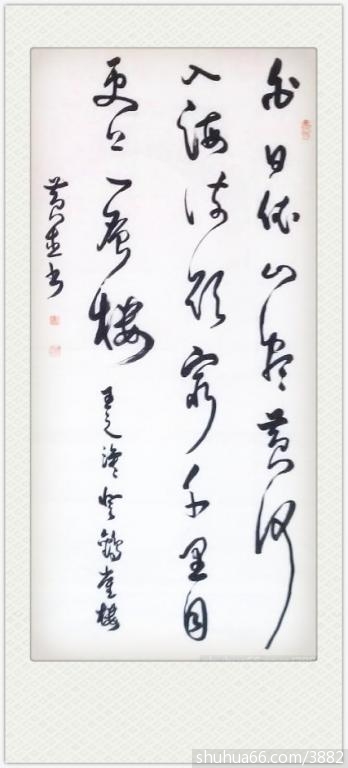 白日依山尽黄河
入海流欲穷千里目
更上一层楼 王之涣登鹳雀楼
黄书
shuhua66.com/3882